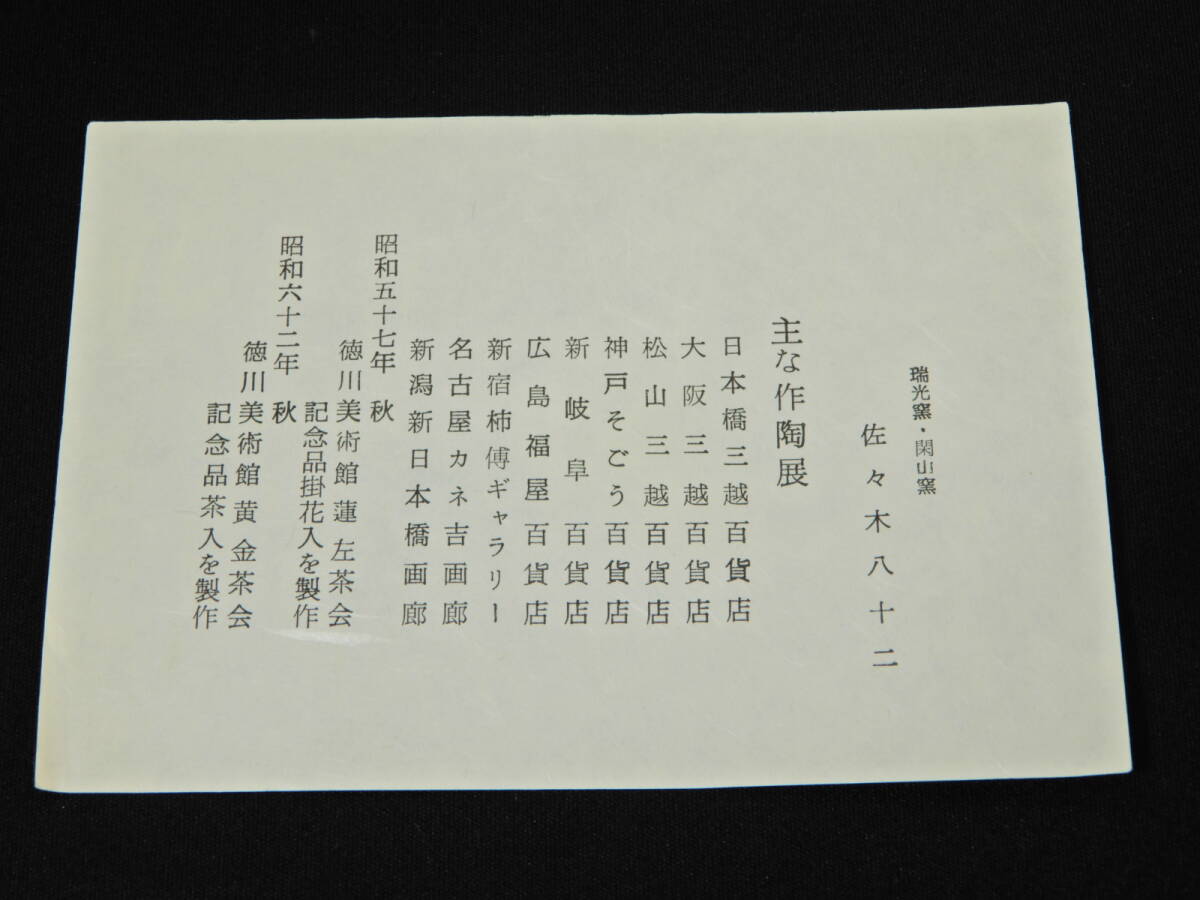 瑞光窯・閑山窯
佐々木八十二
主な作陶展
日本橋三越百貨店
大阪三越百貨店
松山三越百貨店
神戸そごう百貨店
新岐阜百貨店
広島福屋百貨店
新宿柿傅ギャラリー
名古屋カネ吉画廊
新潟新日本橋画廊
昭和五十七年 秋
徳川美術館蓮左茶会
記念品掛花入を製作
昭和六十二年 秋
徳川美術館黄金茶会
記念品茶入を製作